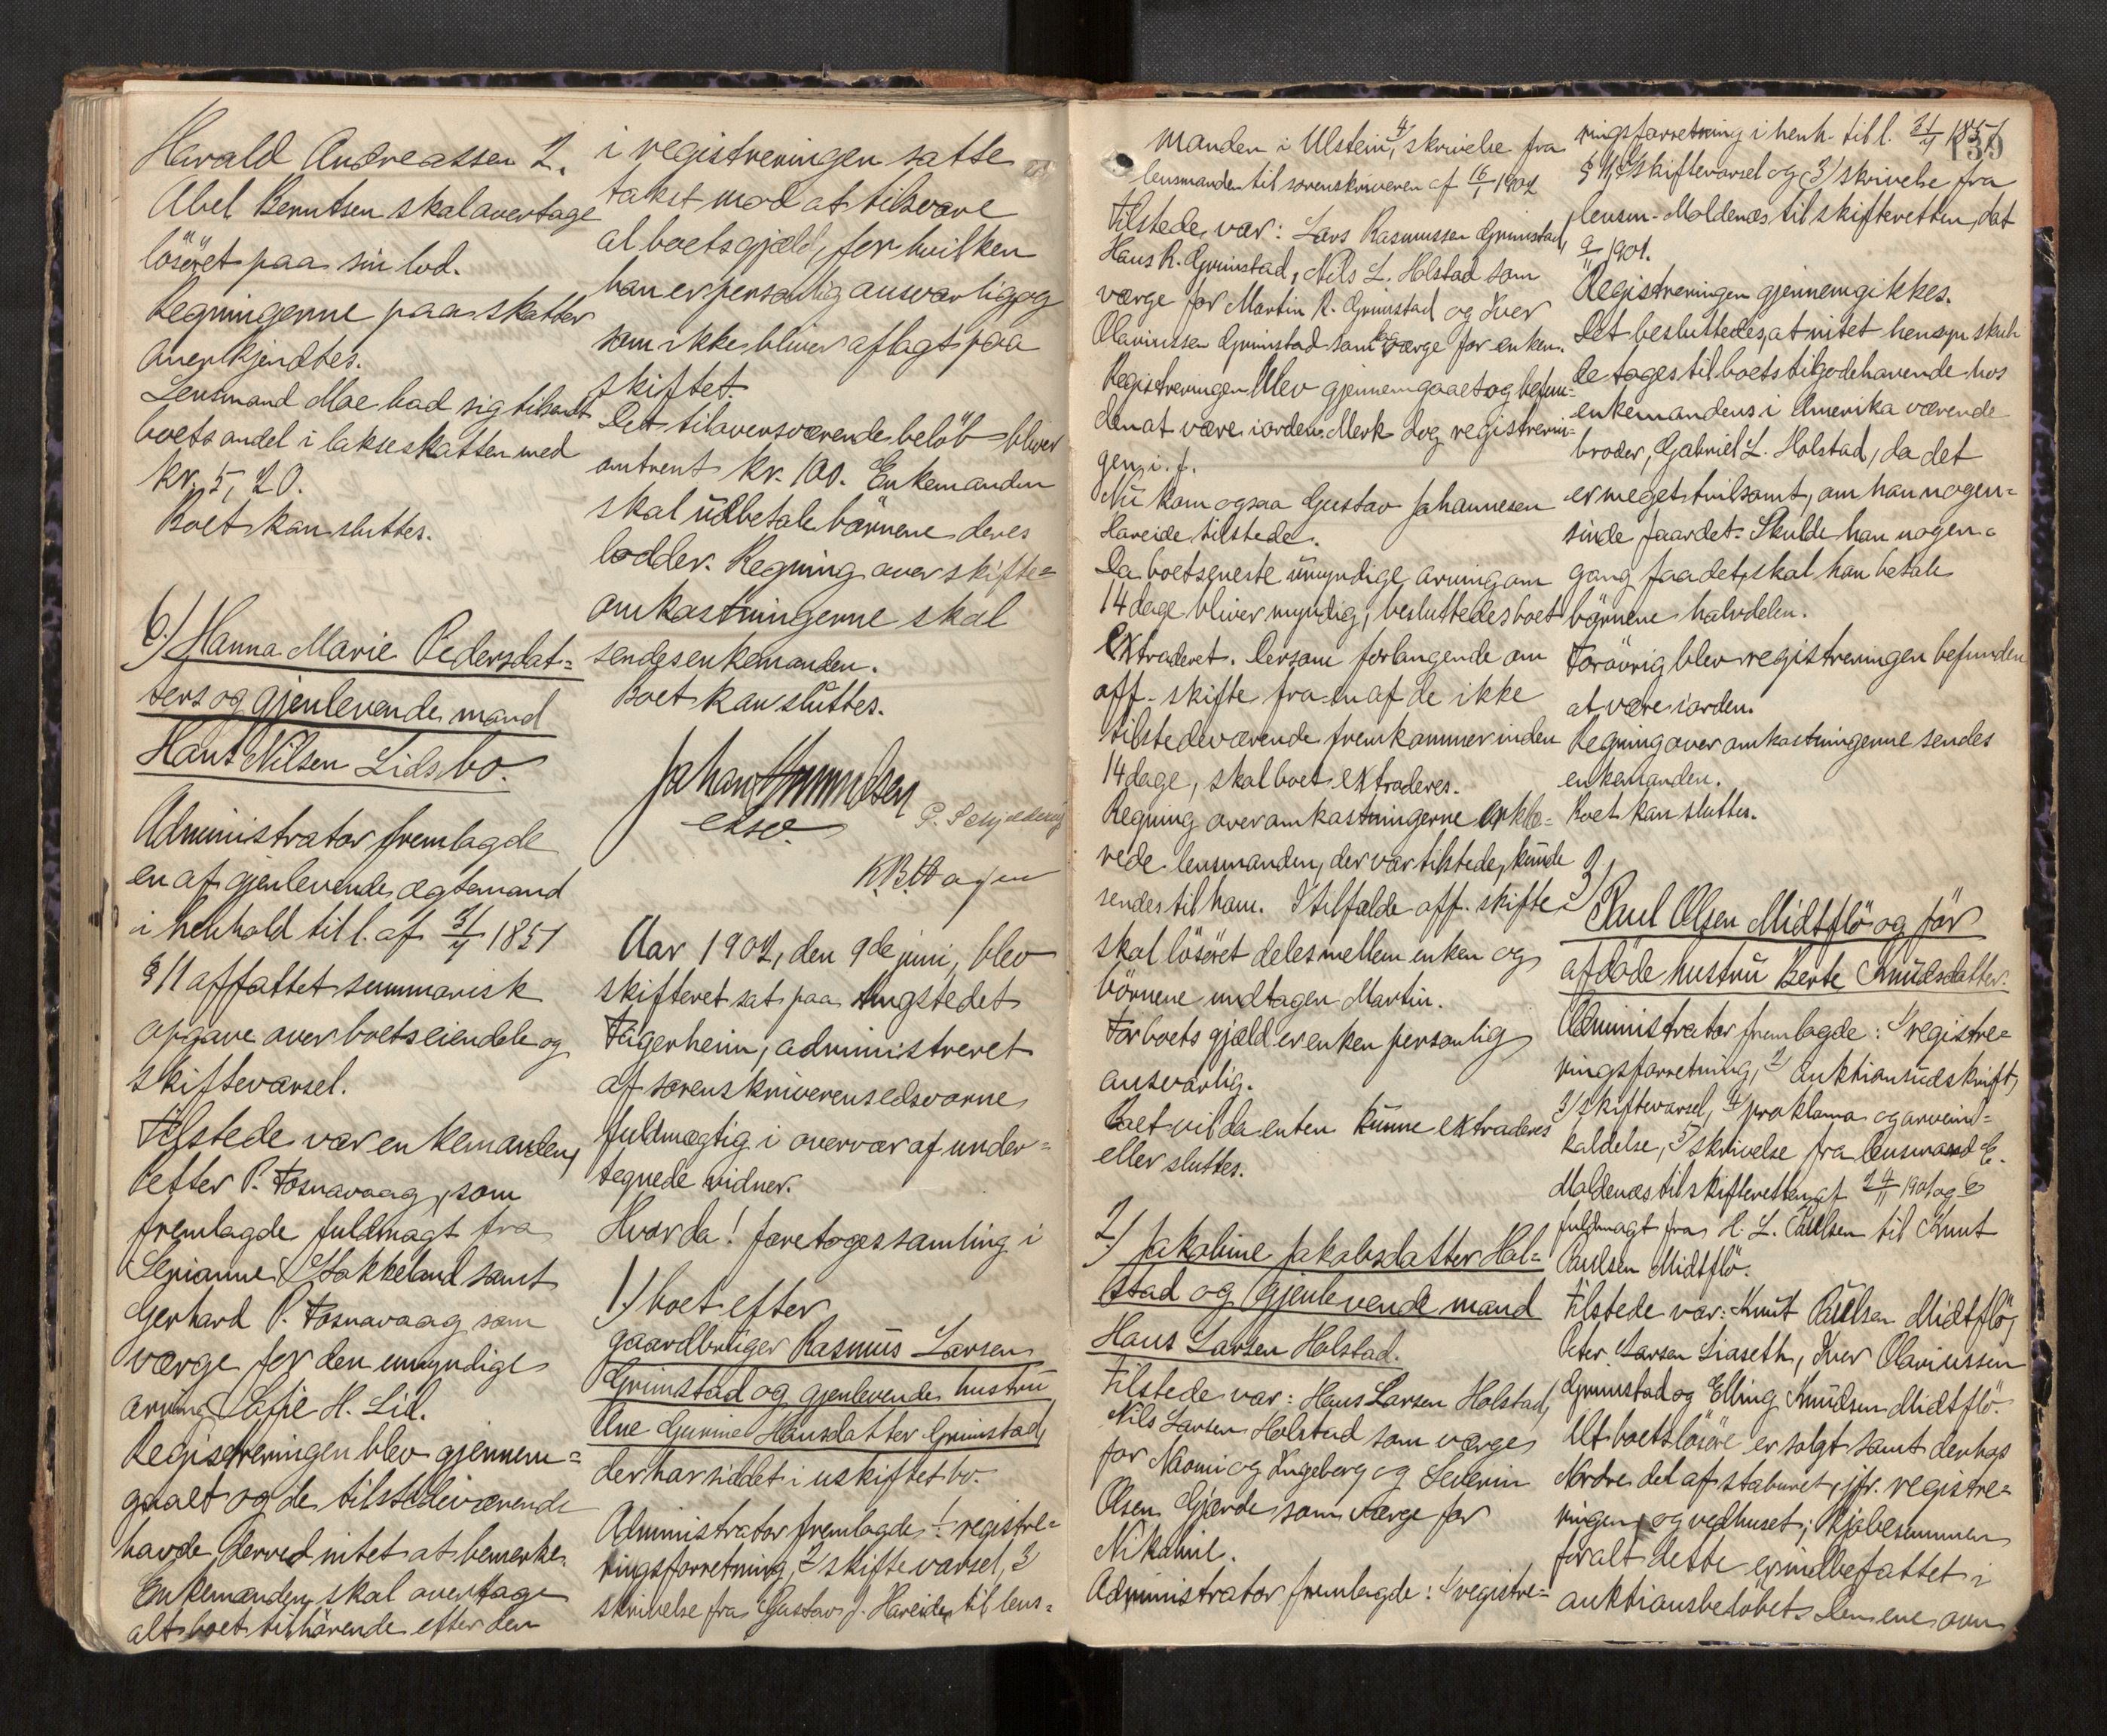 Harald Andreassen 2.
Abel Berntsen skal overtage
løsøret paa sin lod.
Regningerne paa skatter
anerkjendtes.
Lensmand Moe bad sig tilsendt
boets andel i lakseskatten med
kr. 5,20.
Boet kan sluttes.
6.) Hanna Marie Pedersdat-
ters og gjenlevende mand
Hans Nilsen Lids bo.
Administrator fremlagde
en af gjenlevende ægtemand
i henhold til l. af 31/7 1851
§ 11 affattet summarisk
opgave over boets eiendele og
skiftevarsel.
Tilstede var enkemanden,
Peder P. Fosnavaag, som
fremlagde fuldmagt fra
Serianne Stokkeland samt
Gerhard P. Fosnavaag som
værge for den umyndige
arving Sofie H. Lid.
Registreringen blev gjennem-
gaaet og de tilstedeværende
havde derved intet at bemerke.
Enkemanden skal overtage
alt boet tilhörende efter den
i registreringen satte
takst mod at tilsvare
al boets gjæld, for hvilken
han er personlig ansvarlig og
som ikke bliver aflagt paa
skiftet.
Det tiloversværende belöb bliver
omtrent kr. 100. Enkemanden
skal udbetale börnene deres
lodder. Regning over skifte-
omkostningerne skal
sendes enkemanden.
Boet kan sluttes.
Johan Amundsen
edsv.
P. Schjelderup
K. B. Hagen
Aar 1902, den 9de juni, blev
skifteret sat paa tingstedet
Fagerheim, administreret
af sorenskriverens edsvorne
fuldmægtig i overvær af under-
tegnede vidner.
Hvor da! foretoges samling i
1.) boet efter
gaardbruger Rasmus Larsen
Grimstad og gjenlevende hustru
Ane Gurine Hansdatter Grimstad,
der har siddet i uskiftet bo.
Administrator fremlagde 1/ registre-
ringsforretning, 2/ skiftevarsel, 3/
skrivelse fra Gustav J. Hareide til lens-
manden i Ulstein, 4/ skrivelse fra
lensmanden til sorenskriveren af 16/1 1902
Tilstede var: Lars Rasmussen Grimstad,
Hans R. Grimstad, Nils L. Holstad som
værge for Martin R. Grimstad og Iver
Olavinssen Grimstad som lagværge for enken.
Registreringen blev gjennemgaaet og befun-
den at være i orden. Merk dog registrerin-
gen i. f.
Nu kom ogsaa Gustav Johannesen
Hareide tilstede.
Da boets eneste umyndige arving om
14 dage bliver myndig, besluttedes boet
extraderet. Dersom forlangende om
off. skifte fra en af de ikke
tilstedeværende fremkommer inden
14 dage, skal boet extraderes.
Regning over omkostningerne erklæ-
rede lensmanden, der var tilstede, kunde
sendes til ham. I tilfælde off. skifte
skal løsøret deles mellem enken og
börnene undtagen Martin.
For boets gjæld er enken personlig
ansvarlig.
Boet vil da enten kunne extraderes
eller sluttes.
2.) Jakobine Jakobsdatter Hol-
stad og gjenlevende mand
Hans Larsen Holstad.
Tilstede var: Hans Larsen Holstad,
Nils Larsen Holstad som værge
for Naomi og Ingeborg og Severin
Olsen Gjærde som værge for
Nikoline.
Administrator fremlagde: 1/ registre-
139
ringsforretning i henh. til l. 31/7 1851
§ 11, 2/ skiftevarsel og 3/ skrivelse fra
lensm. Moldenæs til skifteretten, dat
9/11 1901.
Registreringen gjennemgikkes.
Det besluttedes, at intet hensyn skul-
de tages til boets tilgodehavende hos
enkemandens i Amerika værende
broder, Gabriel L. Holstad, da det
er meget tvilsomt, om han nogen-
sinde faar det. Skulde han nogen-
gang faa det, skal han betale
börnene halvdelen.
Forövrig blev registreringen befunden
at være i orden.
Regning over omkostningerne sendes
enkemanden.
Boet kan sluttes.
3.)
Paul Olsen Midtflö og för
afdöde hustru Berte Knudsdatter.
Administrator fremlagde: 1/ registre-
ringsforretning, 2/ auktionsudskrift,
3/ skiftevarsel, 4/ proklama og arveind-
kaldelse, 5/ skrivelse fra lensmand E.
Moldenæs til skifteretten af 24/11 1901 og 6/
fuldmagt fra H. L. Paulsen til Knut
Paulsen Midtflö.
Tilstede var: Knut Paulsen Midtflö,
Peter Larsen Liaseth, Iver Olavinssen
Grimstad og Elling Knudsen Midtflö.
Alt boets løsøre er solgt samt derhos
Nordre del af staburet, jfr. registre-
ringen, og vedhuset; kjøbesummen
for alt dette er indbefattet i
auktionsbelöbet.